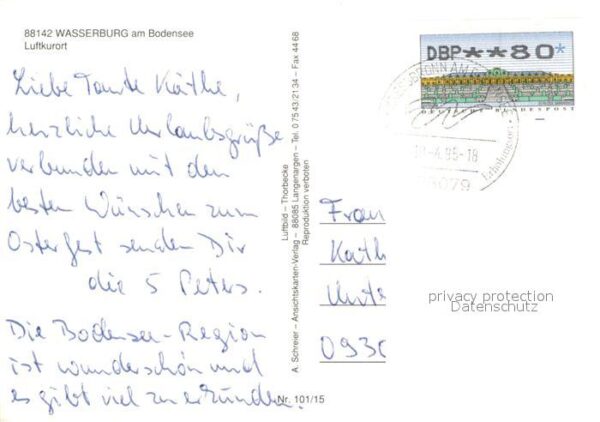 88142 WASSERBURG am Bodensee
Luftkurort
Liebe Tante Käthe,
herzliche Urlaubsgrüße
verbunden mit den
besten Wünschen zum
Osterfest senden Dir
die 5 Peters.
Die Bodensee-Region
ist wunderschön und
es gibt viel zu erkunden.
A. Schreier – Ansichtskarten-Verlag – 88085 Langenargen – Tel. 0 75 43/21 34 – Fax 44 68
Luftbild – Thorbecke
Reproduktion verboten
Nr. 101/15
DBP**80*
DEUTSCHE BUNDESPOST
.4.95-18
Erholungsort
Frau
Käth
Unte
0930
privacy protection
Datenschutz